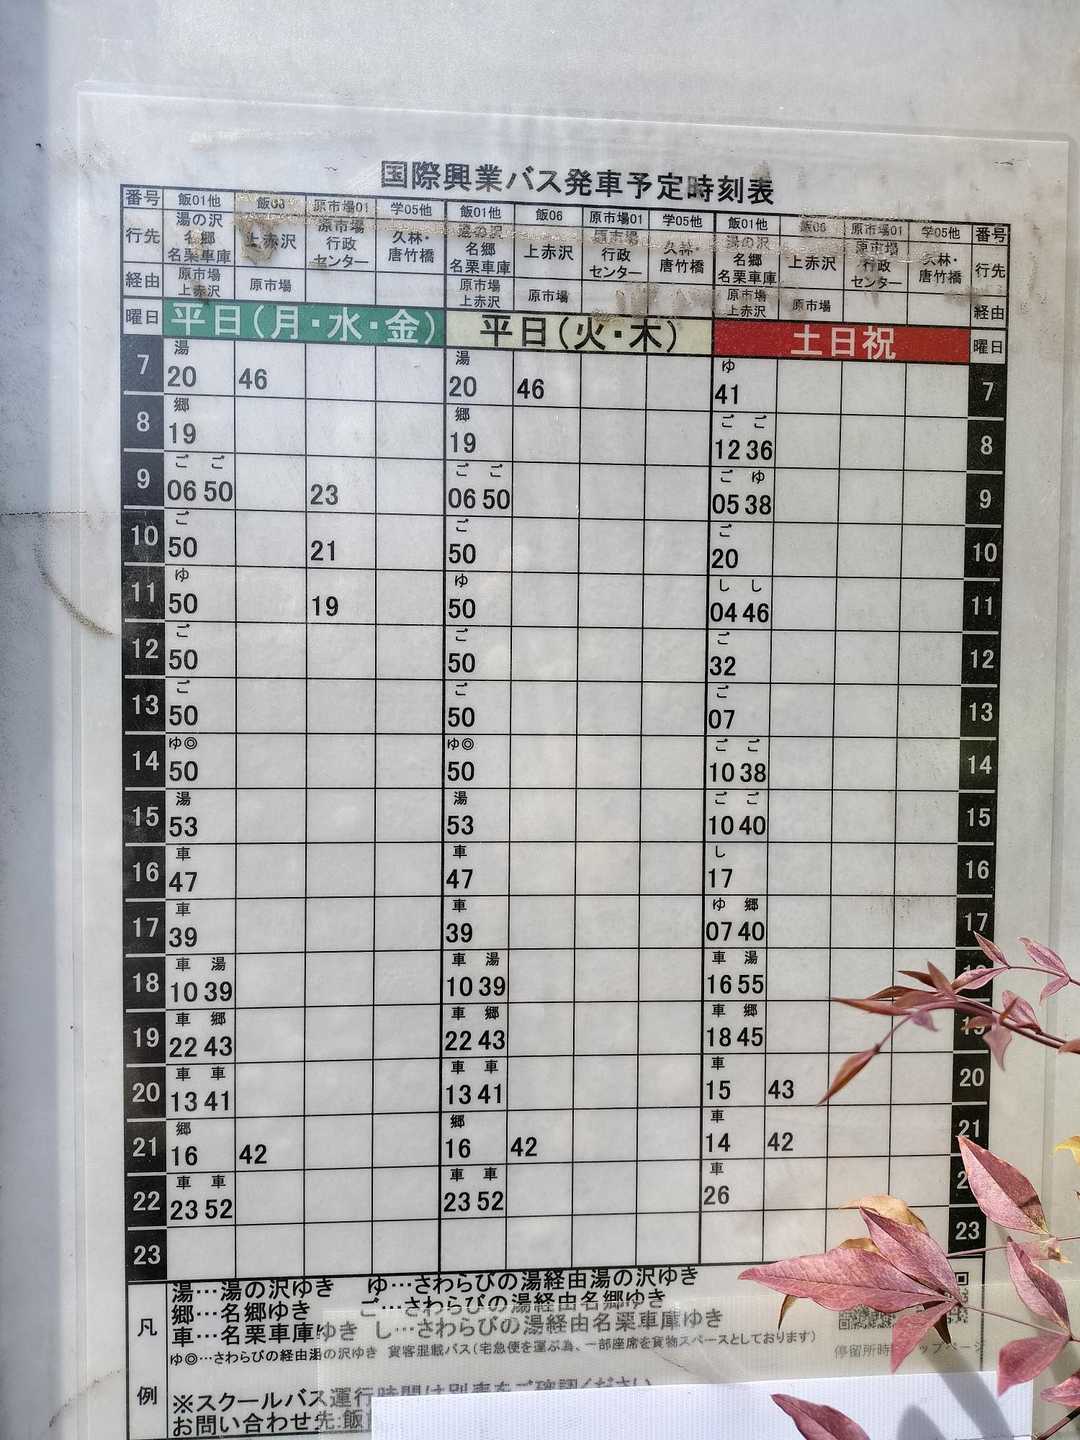 国際興業バス発車予定時刻表
番号 飯01他 飯06 原市場01 学05他 飯01他 飯06 原市場01 学05他 飯01他 飯06 原市場01 学05他 番号
行先 湯の沢 名郷 名栗車庫 上赤沢 原市場 行政 センター 久林・ 唐竹橋 湯の沢 名郷 名栗車庫 上赤沢 原市場 行政 センター 久林・ 唐竹橋 湯の沢 名郷 名栗車庫 上赤沢 原市場 行政 センター 久林・ 唐竹橋 行先
経由 原市場 上赤沢 原市場 原市場 上赤沢 原市場 原市場 上赤沢 原市場 経由
曜日 平日(月・水・金) 平日(火・木) 土日祝 曜日
湯 湯 ゆ
7 20 46 20 46 41 7
郷 郷 ご ご
8 19 19 12 36 8
ご ご ご ご ご ゆ
9 06 50 23 06 50 05 38 9
ご ご ご
10 50 21 50 20 10
ゆ ゆ し し
11 50 19 50 04 46 11
ご ご ご
12 50 50 32 12
ご ご ご
13 50 50 07 13
ゆ◎ ゆ◎ ご ご
14 50 50 10 38 14
湯 湯 ご ご
15 53 53 10 40 15
車 車 し
16 47 47 17 16
車 車 ゆ 郷
17 39 39 07 40 17
車 湯 車 湯 車 湯
18 10 39 10 39 16 55
車 郷 車 郷 車 郷
19 22 43 22 43 18 45 19
車 車 車 車 車
20 13 41 13 41 15 43 20
郷 郷 車
21 16 42 16 42 14 42 21
車 車 車 車 車
22 23 52 23 52 26
23 23
凡例
湯…湯の沢ゆき ゆ…さわらびの湯経由湯の沢ゆき
郷…名郷ゆき ご…さわらびの湯経由名郷ゆき
車…名栗車庫ゆき し…さわらびの湯経由名栗車庫ゆき
ゆ◎…さわらびの経由湯の沢ゆき 貨客混載バス(宅急便を運ぶ為、一部座席を貨物スペースとしております)
停留所時
ップページ
※スクールバス運行時間は別表をご確認ください
お問い合わせ先:飯